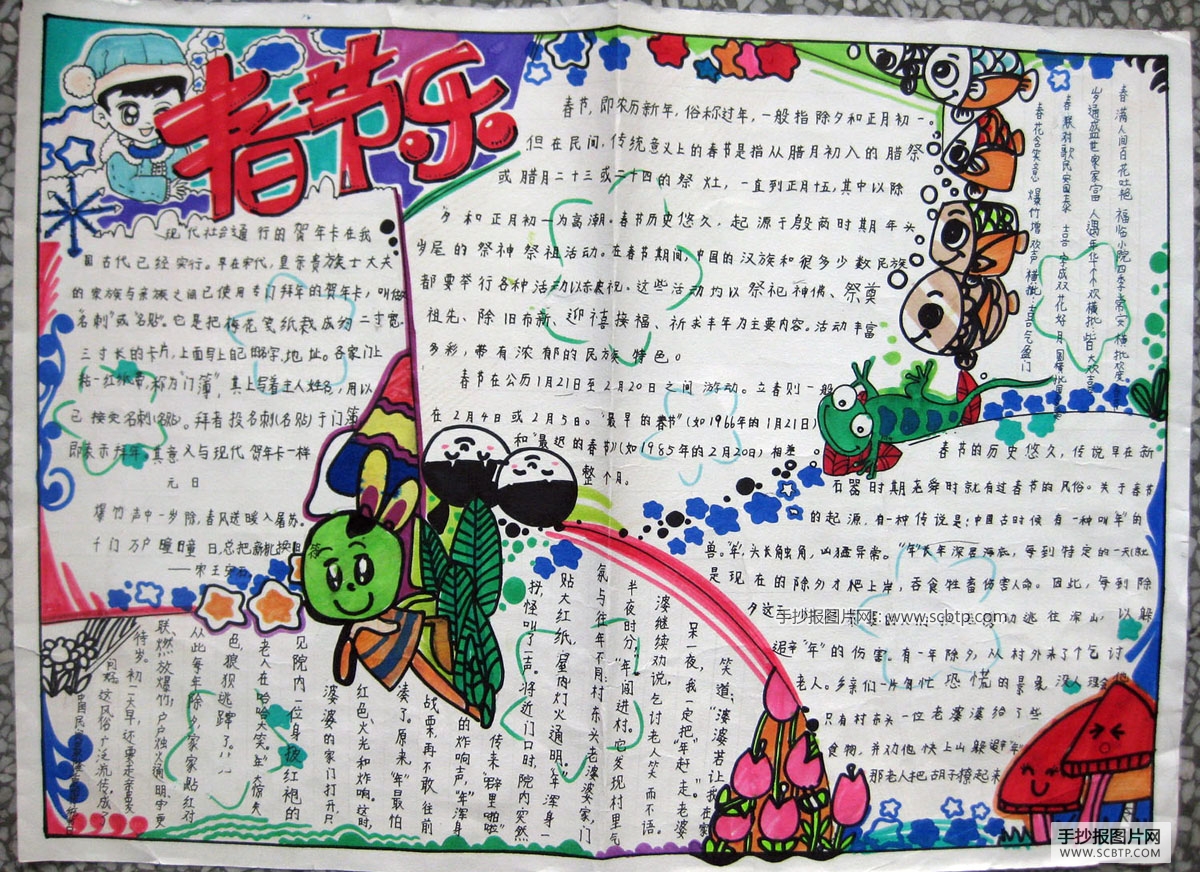 春节乐
现代社会通行的贺年卡在我
国古代已经实行。早在宋代,皇亲贵族士大夫
的家族与亲族之间已使用专门拜年的贺年卡,叫做
"名刺"或"名贴"。它是把梅花笺纸裁成约二寸宽、
三寸长的卡片,上面写上自己姓名、地址。各家门上
粘一红纸袋,称为"门簿",其上写着主人姓名,用以
已接夹名刺(名贴)。拜者投名刺(名贴)于门簿
即表示拜年。其意义与现代贺年卡一样
元日
爆竹声中一岁除,春风送暖入屠苏。
千门万户曈曈日,总把新桃换旧符
——宋王安石
春节,即农历新年,俗称过年,一般指除夕和正月初一。
但在民间,传统意义上的春节是指从腊月初八的腊祭
或腊月二十三或二十四的祭灶,一直到正月十五,其中以除
夕和正月初一为高潮。春节历史悠久,起源于殷商时期年头
岁尾的祭神祭祖活动。在春节期间,中国的汉族和很多少数民族
都要举行各种活动以示庆祝。这些活动均以祭祀神佛、祭奠
祖先、除旧布新、迎禧接福、祈求丰年为主要内容。活动丰富
多彩,带有浓郁的民族特色。
春节在公历1月21日至2月20日之间游动。立春则一般
在2月4日或2月5日。"最早的春节"(如1966年的1月21日)
和"最迟的春节")(如1985年的2月20日)相差
整个月。
春满人间百花吐艳 福临小院四季常安 横批:欢度
岁通盛世家家富 人遇年华个个欢 横批:皆大欢喜
春联对歌民安国泰 喜字成双花好月圆
春花含笑意 爆竹增欢声 横批:喜气盈门
春节的历史悠久,传说早在新
石器时期尧舜时就有过春节的风俗。关于春节
的起源,有一种传说是:中国古时候有一种叫"年"的
兽。"年"头长触角,凶猛异常。"年"长年深居海底,每到特定的一天就
是现在的除夕才爬上岸,吞食牲畜伤害人命。因此,每到除
夕这
逃往深山,以躲
避"年"的伤害。有一年除夕,从村外来了个乞讨
老人。乡亲们一片匆忙恐慌的景象,没人理会他
只有村东头一位老婆婆给了些
食物,并劝他快上山躲避"年"
那老人把胡子撩起来
笑道:"婆婆若让我在家
呆一夜,我一定把"年"赶走。老婆
婆继续劝说,乞讨老人笑而不语。
半夜时分,"年"闯进村。它发现村里气
氛与往年不同:村东头老婆婆家,门
贴大红纸,屋内灯火通明。"年"浑身一
抖,怪叫了一声。将近门口时,院内突然
传来"砰砰啪啪"
的炸响声,"年"浑身
战栗,再不敢往前
凑了。原来,"年"最怕
红色、火光和炸响。这时,
婆婆的家门打开,只
见院内一位身披红袍的
老人在哈哈大笑。"年"大惊失
色,狼狈逃蹿了。
从此每年除夕,家家贴红对
联、燃放爆竹;户户烛火通明、守更
待岁。初一大早,还要走亲串友
这风俗广泛流传,成了
手抄报图片网:www.scbtp.com
手抄报图片网
WWW.SCBTP.COM